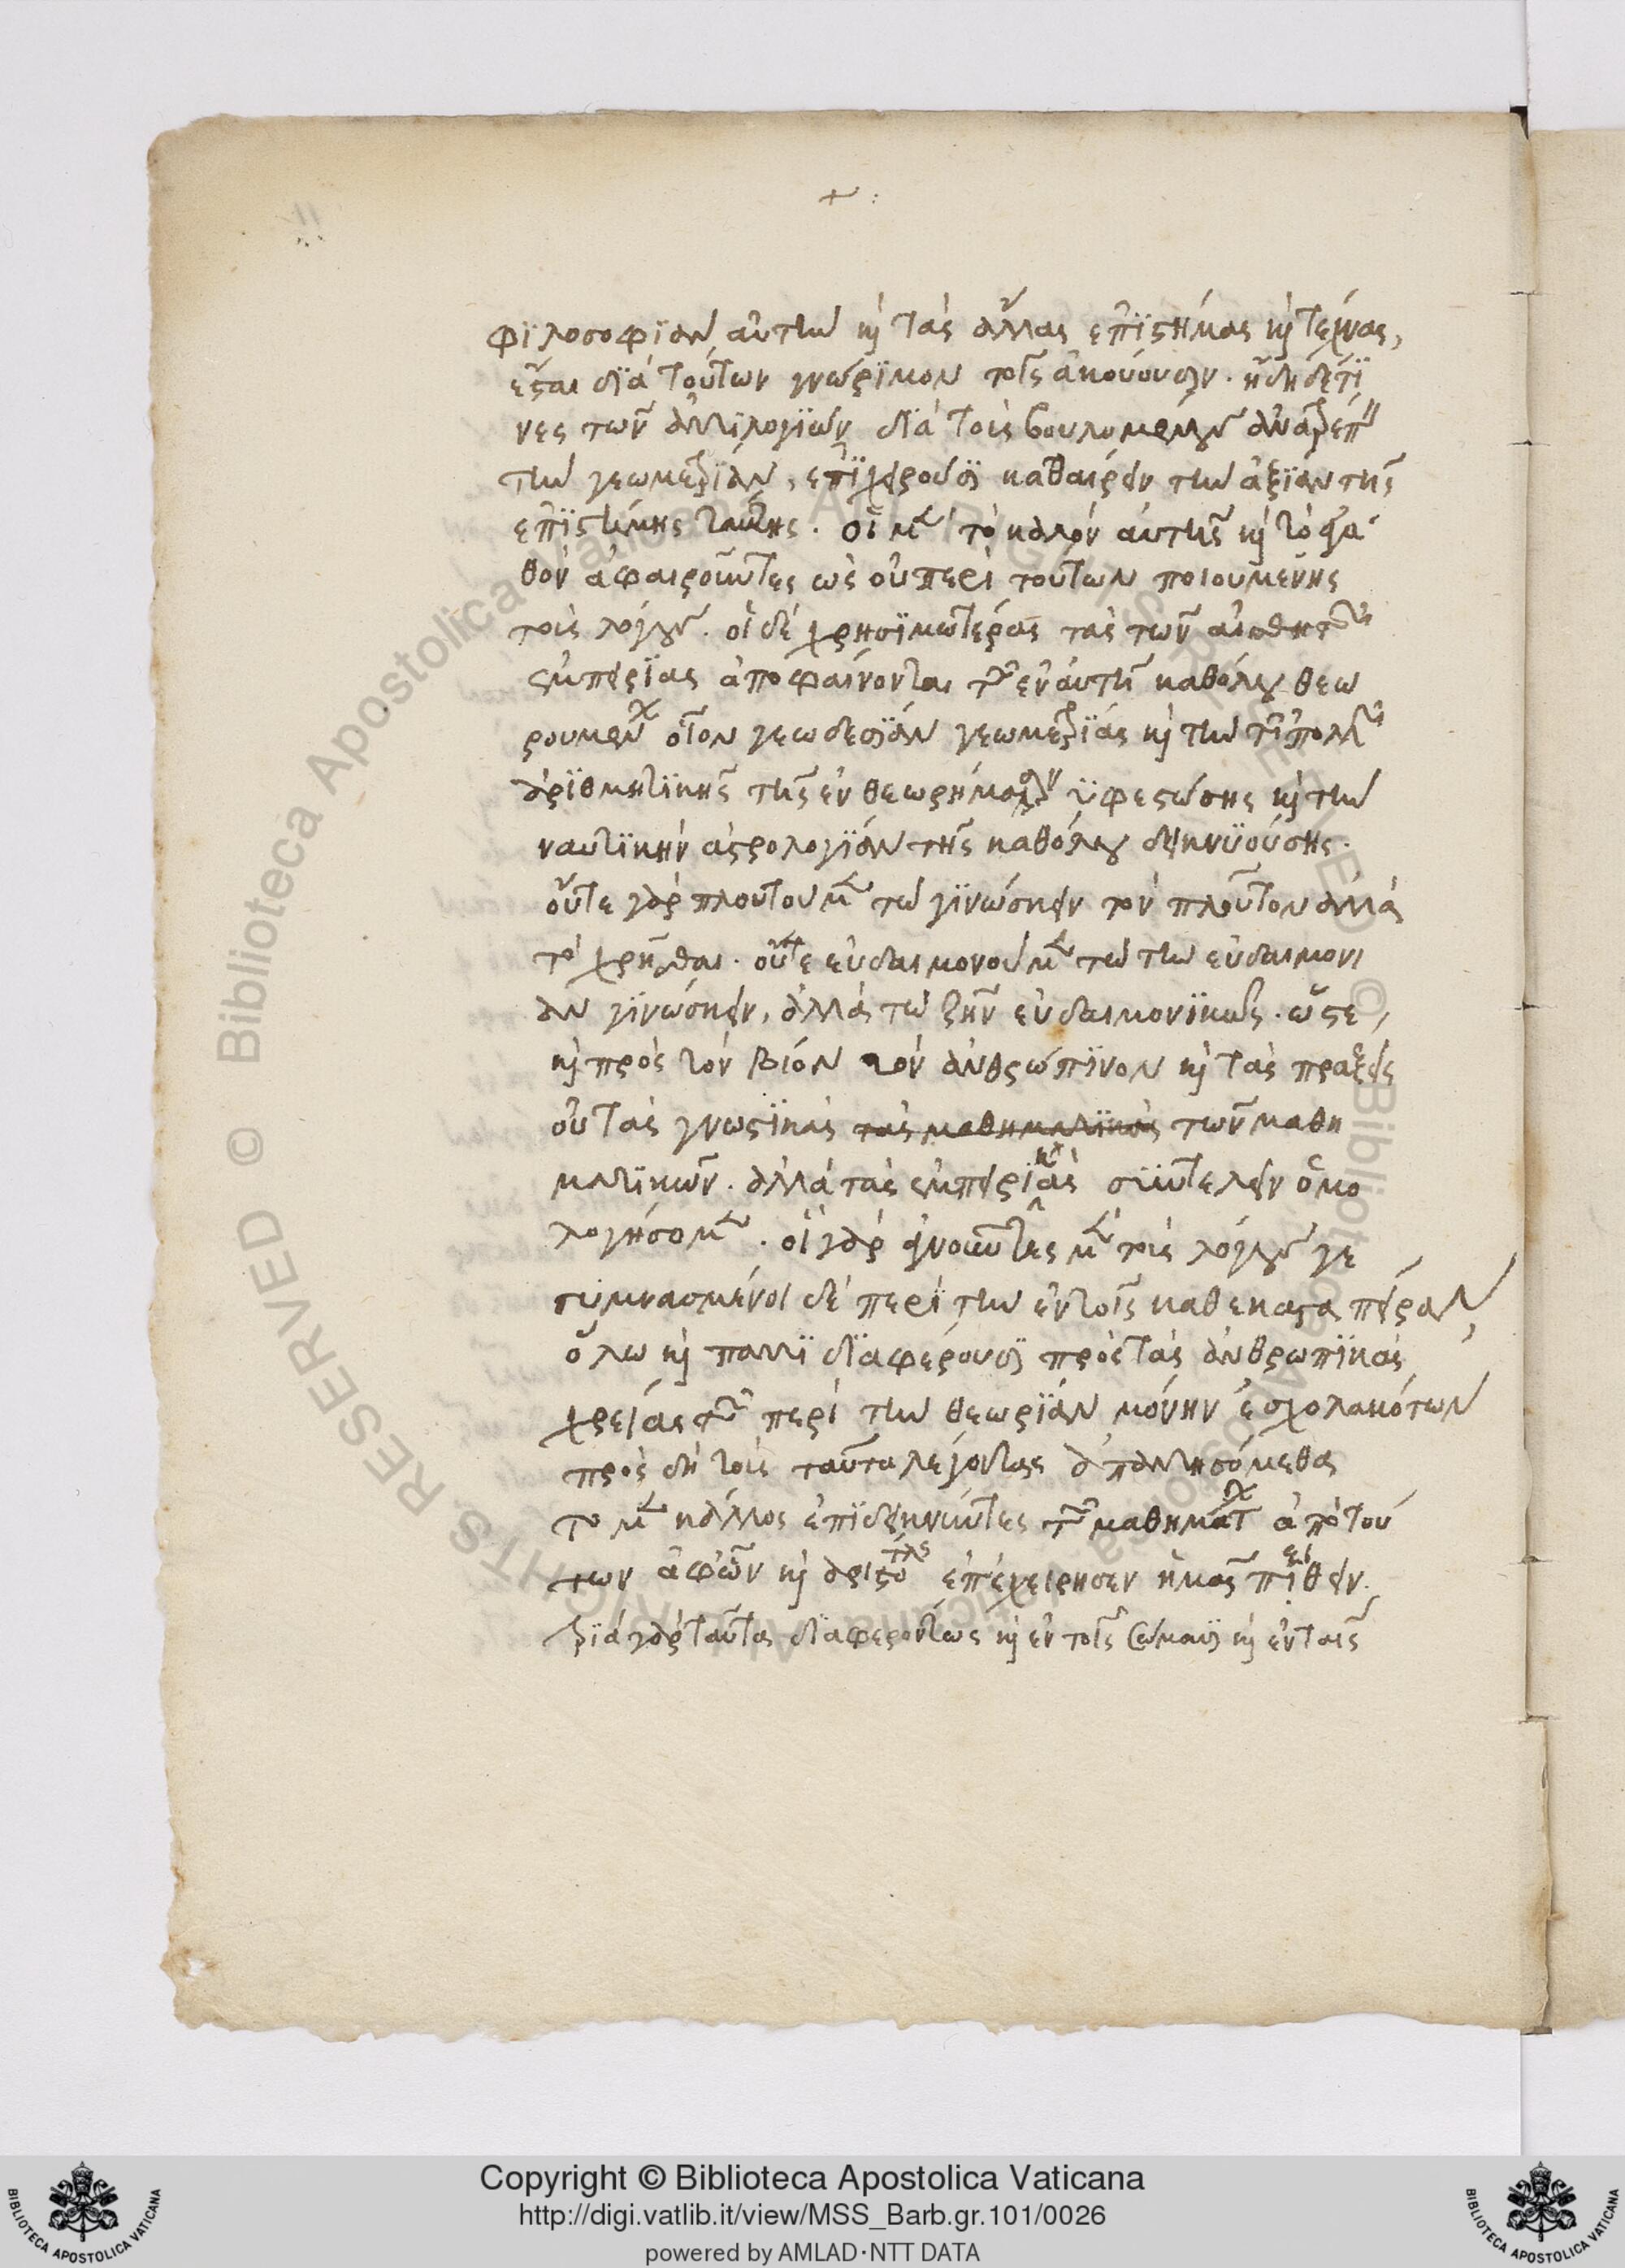 φϊλοσοφϊαν αὐτὴν κὶ τὰς ἄλλας ἐπϊστήμας κὶ τέχνας,
ἔσται δϊὰ τούτων γνώρϊμον τοῖς ἀκούουσιν. ἤδη δέ τϊ
νες τῶν ἀντιλογϊῶν διὰ τοὺς βουλομένους ἀνατρέπειν
τὴν γεωμετρϊαν, ἐπϊχειροῦσϊ καθαιρεῖν τὴν ἀξϊαν τῆς
ἐπϊστήμης ταύτης. οἱ μὲν τὸ καλὸν αὐτῆς κὶ τὸ ἀγα
θὸν ἀφαιροῦντες ὡς οὐ περὶ τούτων ποιουμένης
τοὺς λόγους. οἱ δὲ χρησϊμωτέρας τὰς τῶν αἰσθητῶν
ἐμπειρϊας ἀποφαίνονται τῶν ἐν αὐτῇ καθόλου θεω
ρουμένων οἷον γεωδεσϊαν γεωμετρϊας κὶ τὴν τῶν πολλῶν
ἀρϊθμητϊκῆς τῆς ἐν θεωρήμασιν ὑφεστώσης κὶ τὴν
ναυτϊκὴν ἀστρολογϊαν τῆς καθόλου δεικνϋούσης.
οὔτε γὰρ πλουτοῦμεν τῷ γϊνώσκειν τὸν πλοῦτον ἀλλὰ
τὸ χρῆσθαι. οὔτε εὐδαιμονοῦμεν τῷ τὴν εὐδαιμονι
αν γϊνώσκειν, ἀλλὰ τῷ ζῆν εὐδαιμονϊκῶς. ὥστε,
κὶ πρὸς τὸν βιὸν τὸν ἀνθρώπϊνον κὶ τὰς πράξεις
οὐ τὰς γνωστϊκὰς τὰς μαθηματϊκὰς τῶν μαθη
ματϊκῶν. ἀλλὰ τὰς ἐμπειρϊκὰς συντελεῖν ὁμο
λογήσομεν. οἱ γὰρ ἀγνοοῦντες μὲν τοὺς λόγους γε
γυμνασμένοι δὲ περὶ τὴν ἐν τοῖς καθέκαστα πεῖραν,
ὅλῳ κὶ παντϊ δϊαφέρουσϊ πρὸς τὰς ἀνθρωπϊκὰς
χρείας τῶν περὶ τὴν θεωρϊαν μόνην ἐσχολακότων
πρὸς δὴ τοὺς ταῦτα λέγοντας ἀπαντησόμεθα
τὸ μὲν κάλλος ἐπϊδεικνύντες τῶν μαθημάτων ἀπὸ τού
των ἀφ' ὧν κὶ ἀριστοτέλης ἐπεχείρησεν ἡμᾶς πείθειν.
τρϊὰ γὰρ ταῦτα διαφερόντως κὶ ἐν τοῖς σώμασϊ κὶ ἐν ταῖς
Copyright © Biblioteca Apostolica Vaticana
http://digi.vatlib.it/view/MSS_Barb.gr.101/0026
powered by AMLAD·NTT DATA